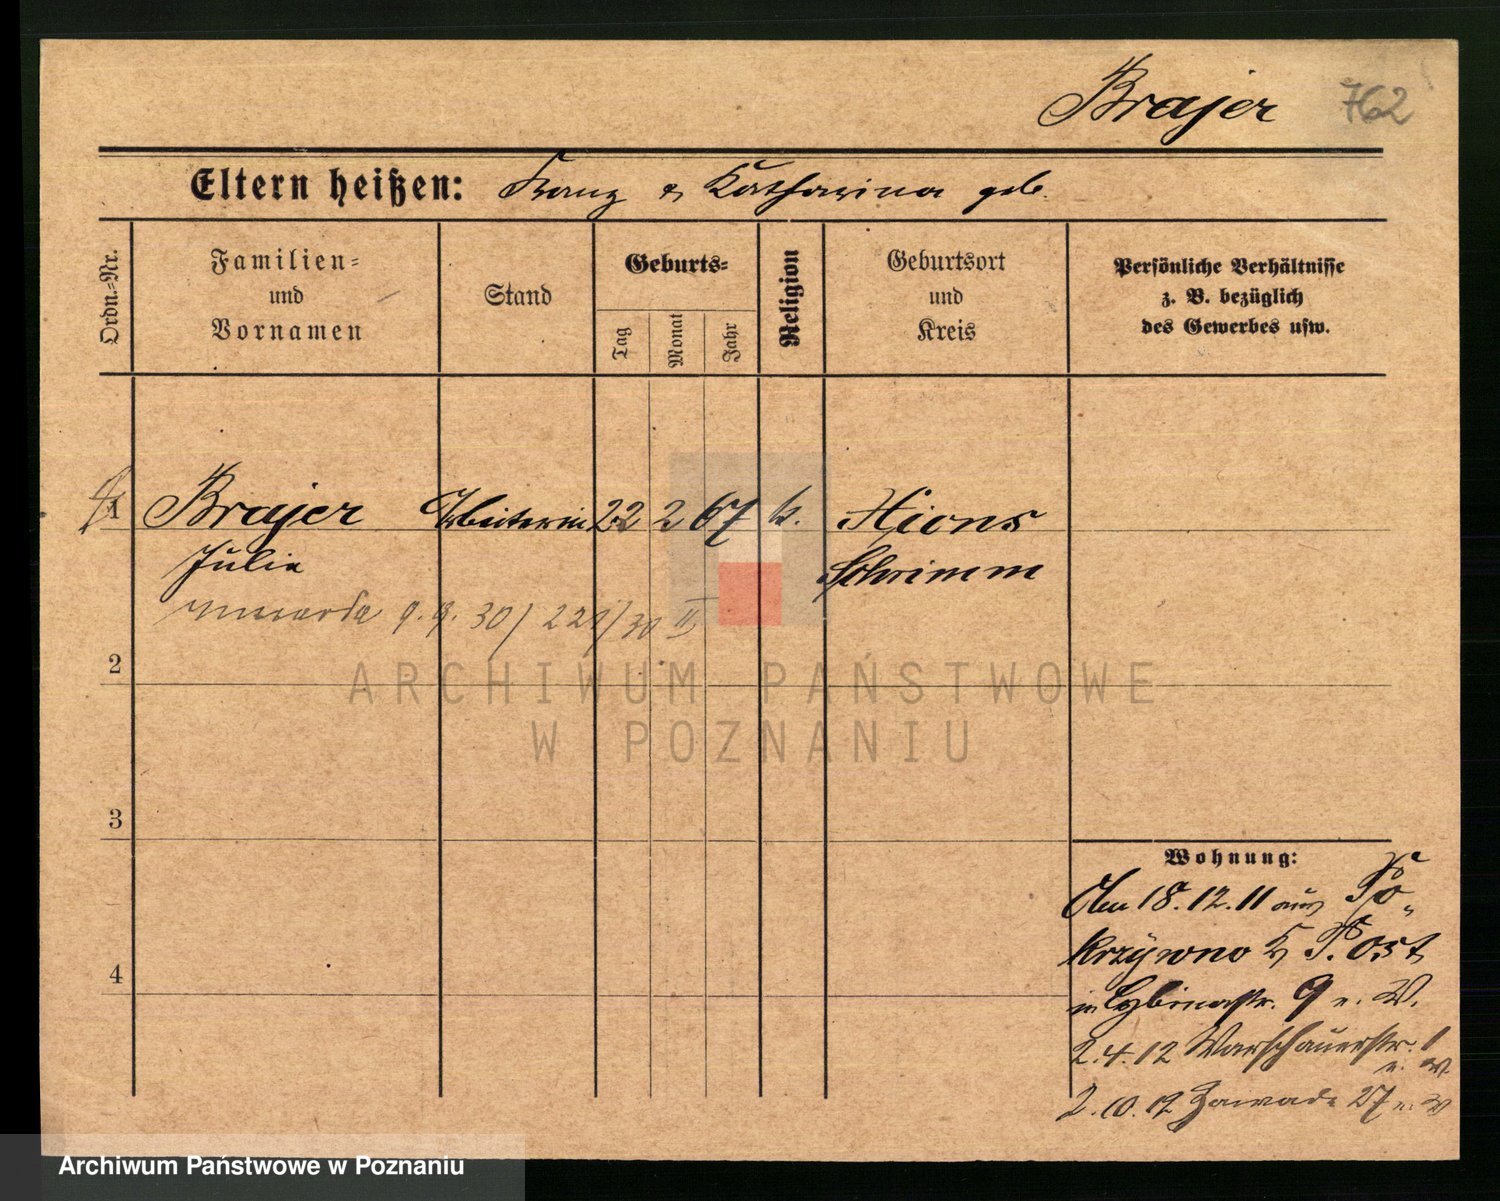 Brajer 762
Eltern heißen: Franz & Katharina geb.
Ordn.-Nr.
Familien-
und
Vornamen
Stand
Geburts-
Tag
Monat
Jahr
Religion
Geburtsort
und
Kreis
Persönliche Verhältnisse
z. B. bezüglich
des Gewerbes usw.
1 Brajer Arbeiterin 22 2 67 k. Xions
Julie Schrimm
umarła 9.9.30/221/30 II
2
3
4
ARCHIWUM PAŃSTWOWE
W POZNANIU
Wohnung:
Am 18.12.11 aus Po-
krzywno K P. Ost
in Cybinastr. 9 n. W.
2.4.12 Warschauerstr. 1
n. W.
2.10.12 Zawade 27 n. W
Archiwum Państwowe w Poznaniu